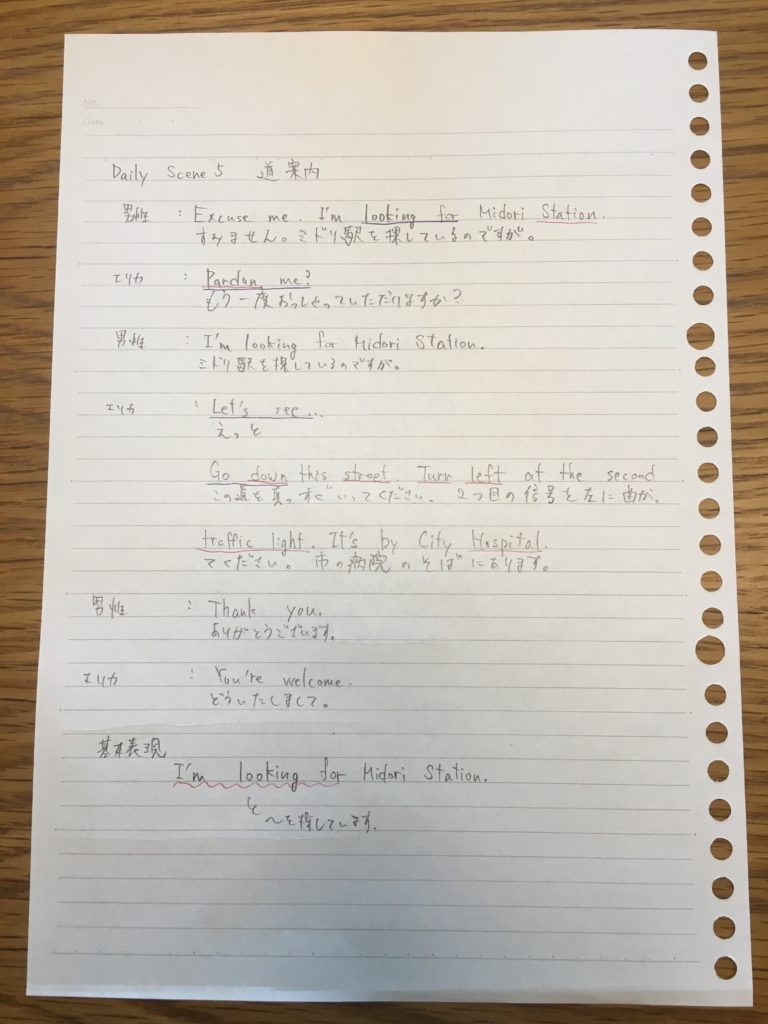 No.
Date
Daily Scene 5 道案内
男性 : Excuse me. I'm looking for Midori Station.
すみません。ミドリ駅を探しているのですが。
エリカ : Pardon me?
もう一度おっしゃっていただけますか?
男性 : I'm looking for Midori Station.
ミドリ駅を探しているのですが。
エリカ : Let's see...
えっと
Go down this street. Turn left at the second
この道を真っすぐいってください。 2つ目の信号を左に曲がっ
traffic light. It's by City Hospital.
てください。 市の病院のそばにあります。
男性 : Thank you.
ありがとうございます。
エリカ : You're welcome.
どういたしまして。
基本表現
I'm looking for Midori Station.
〜を探しています。